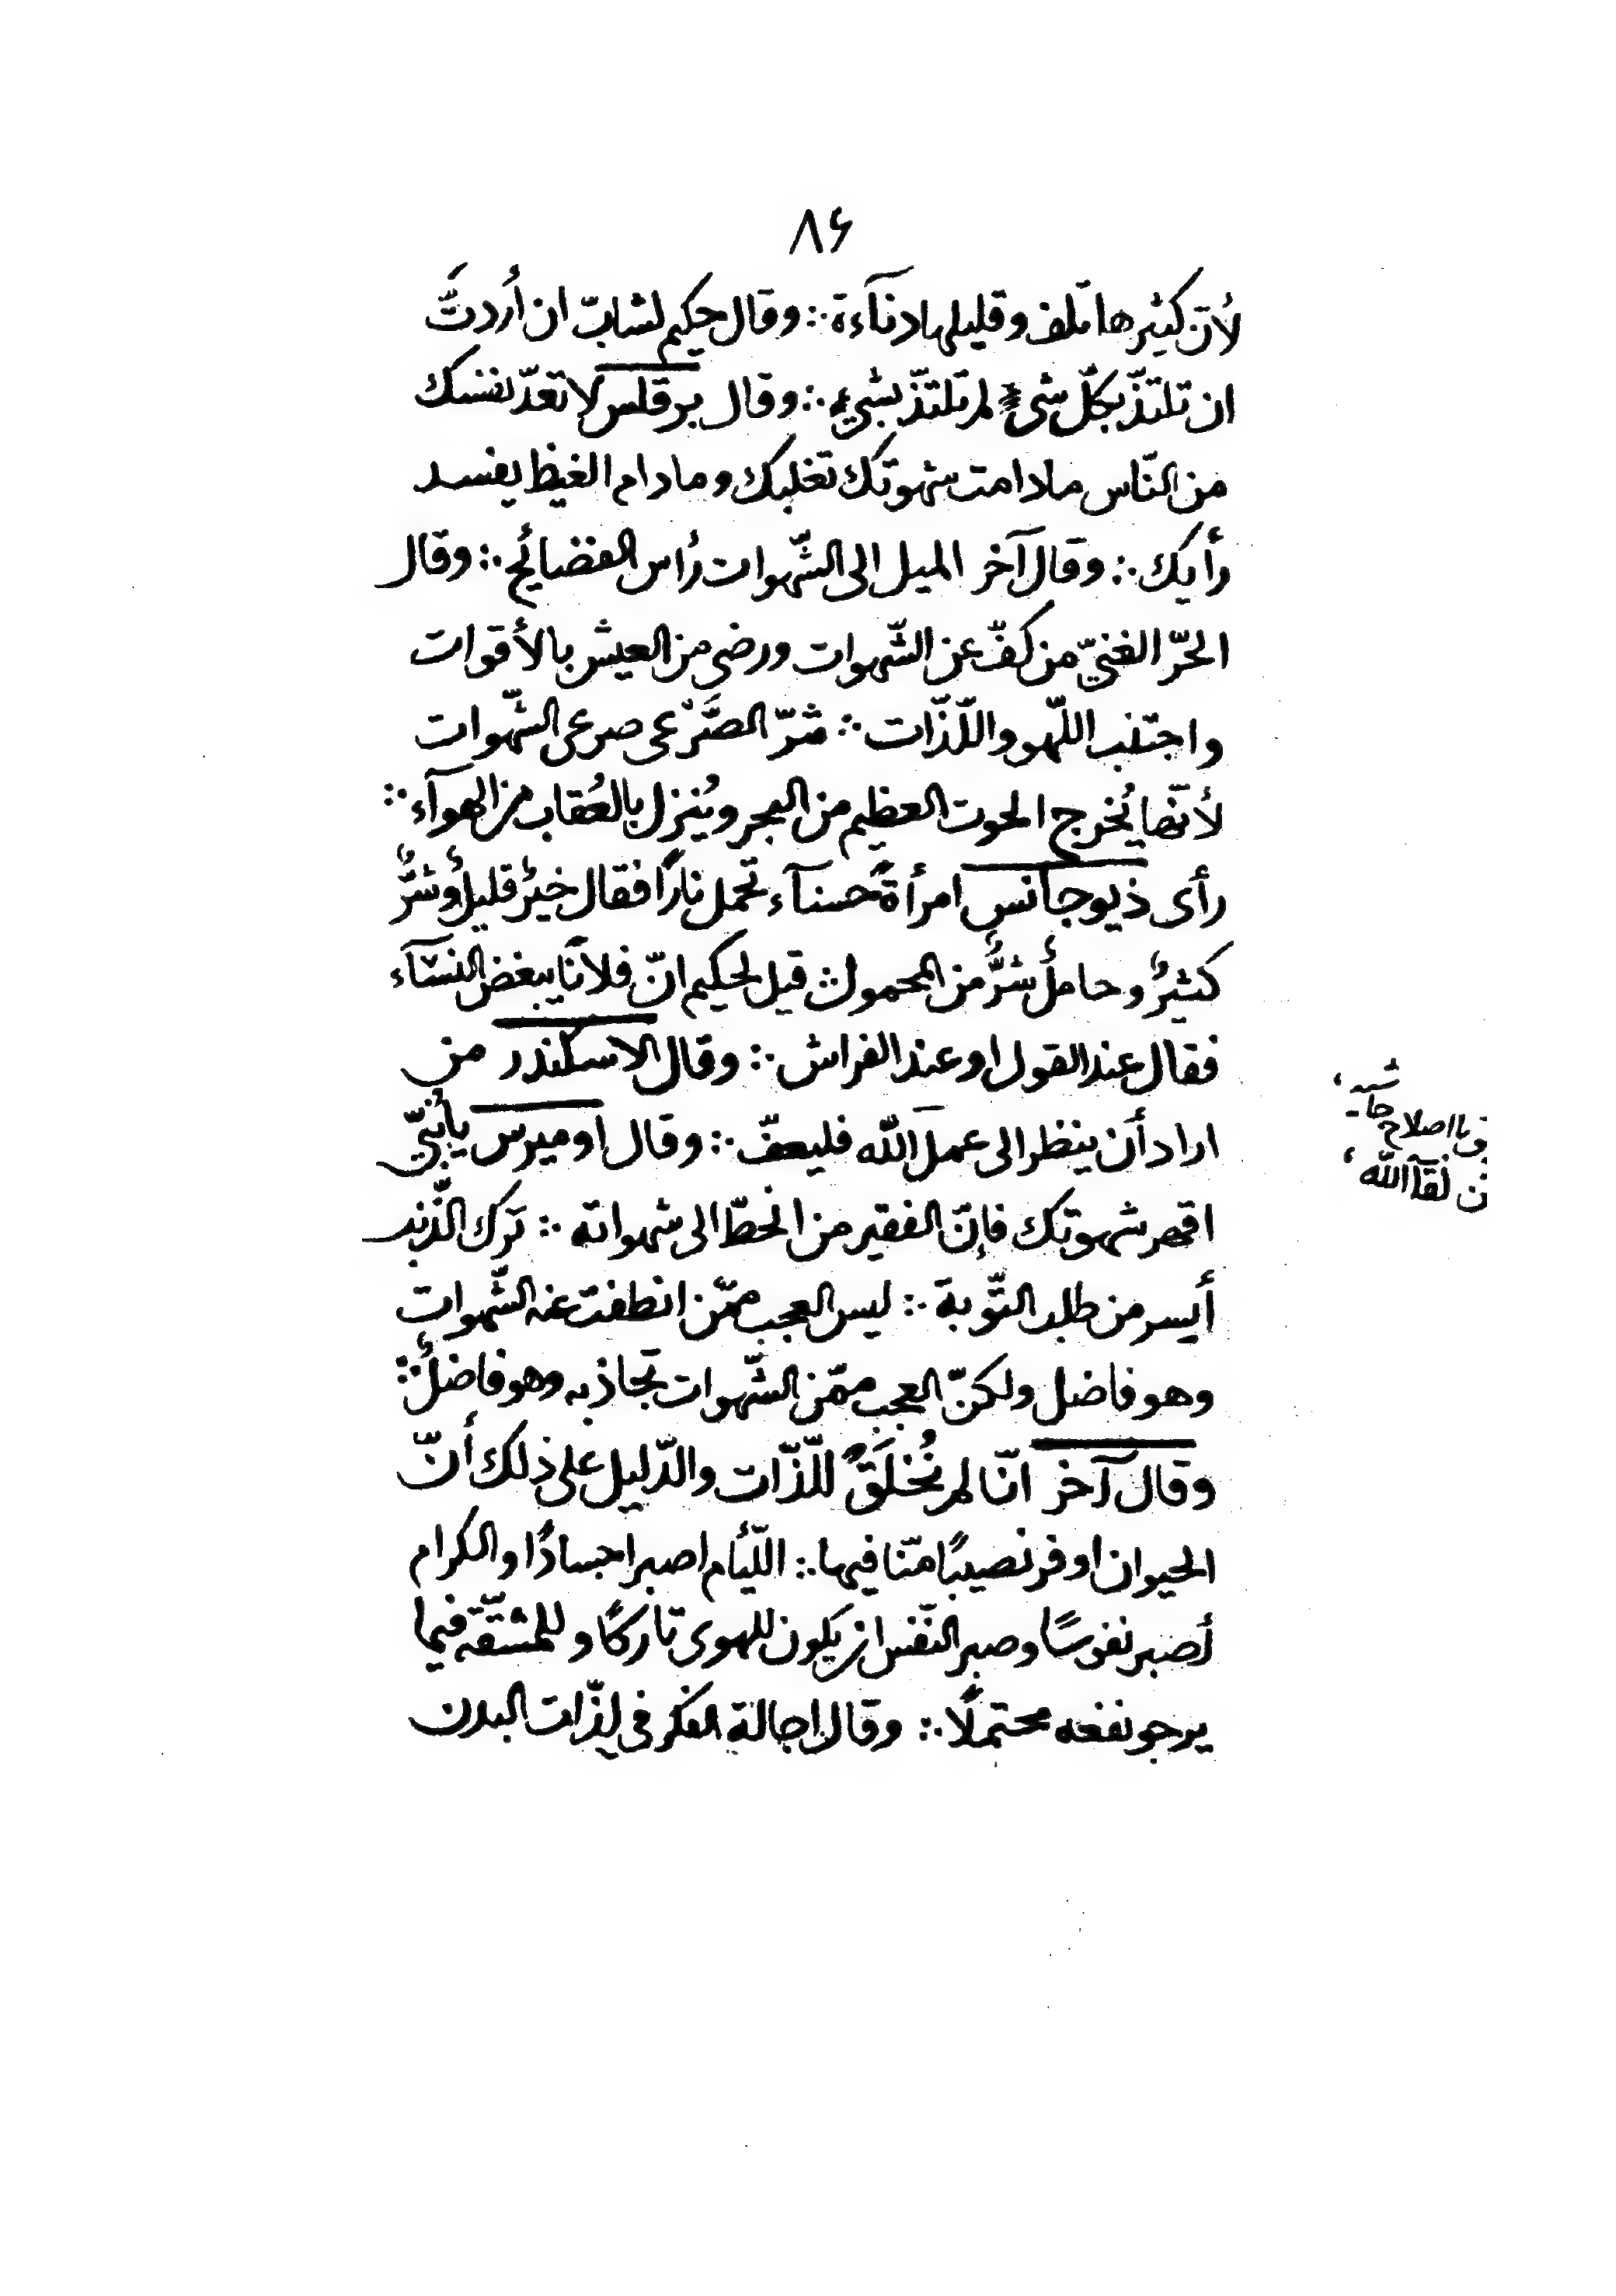 ۸۶
لأنّ كثيرها تلف وقليلها دنآءة ∴ وقال حكيم لشابّ ان أردتَّ
ان تلتذّ بكلّ شيءٍ لم تلتذّ بشيءٍ ∴ وقال برقلس لا تعدّ نفسك
من النّاس مادامت شهوتك تغلبك ومادام الغيظ يفسد
رأيك ∴ وقال آخر الميل الى الشّهوات رأس الفضائح ∴ وقال
الحرّ الغنيّ من كفّ عن الشّهوات ورضي من العيش بالأقوات
واجتنب اللّهو واللّذّات ∴ شرّ الصَّرْعى صرعى الشّهوات
لأنّها يُخرج الحوت العظيم من البحر ويُنزل بالعُقاب من الهوآء ∴
رأى ذيوجانس امرأةً حسنآء تحمل نارًا فقال خيرٌ قليلٌ وشرٌّ
كثيرٌ وحاملٌ شرٌّ من المحمول ∴ قيل لحكيم انّ فلانًا يبغض النسآء
فقال عند القول او عند الفراش ∴ وقال الاسكندر من
اراد أن ينظر الى عمل اللّه فليعفّ ∴ وقال اوميرس يا بُنيّ
اقهر شهوتك فإنّ الفقير من انحطّ الى شهواته ∴ ترك الذّنب
أيسر من طلب التّوبة ∴ ليس العجب ممّن انطفت عنه الشّهوات
وهو فاضل ولكنّ العجب ممّن الشّهوات تجاذبه وهو فاضلٌ ∴
وقال آخر انّا لم نُخلَقْ للّذّات والدّليل على ذلك أنّ
الحيوان اوفر نصيبًا منّا فيها ∴ اللّئام اصبر اجسادًا والكرام
أصبر نفوسًا وصبر النّفس ان يكون للهوى تاركًا وللمشقّة فيما
يرجو نفعه محتملًا ∴ وقال اجالة الفكر في لذّات البدن
با اصلاح
لقآء اللّه